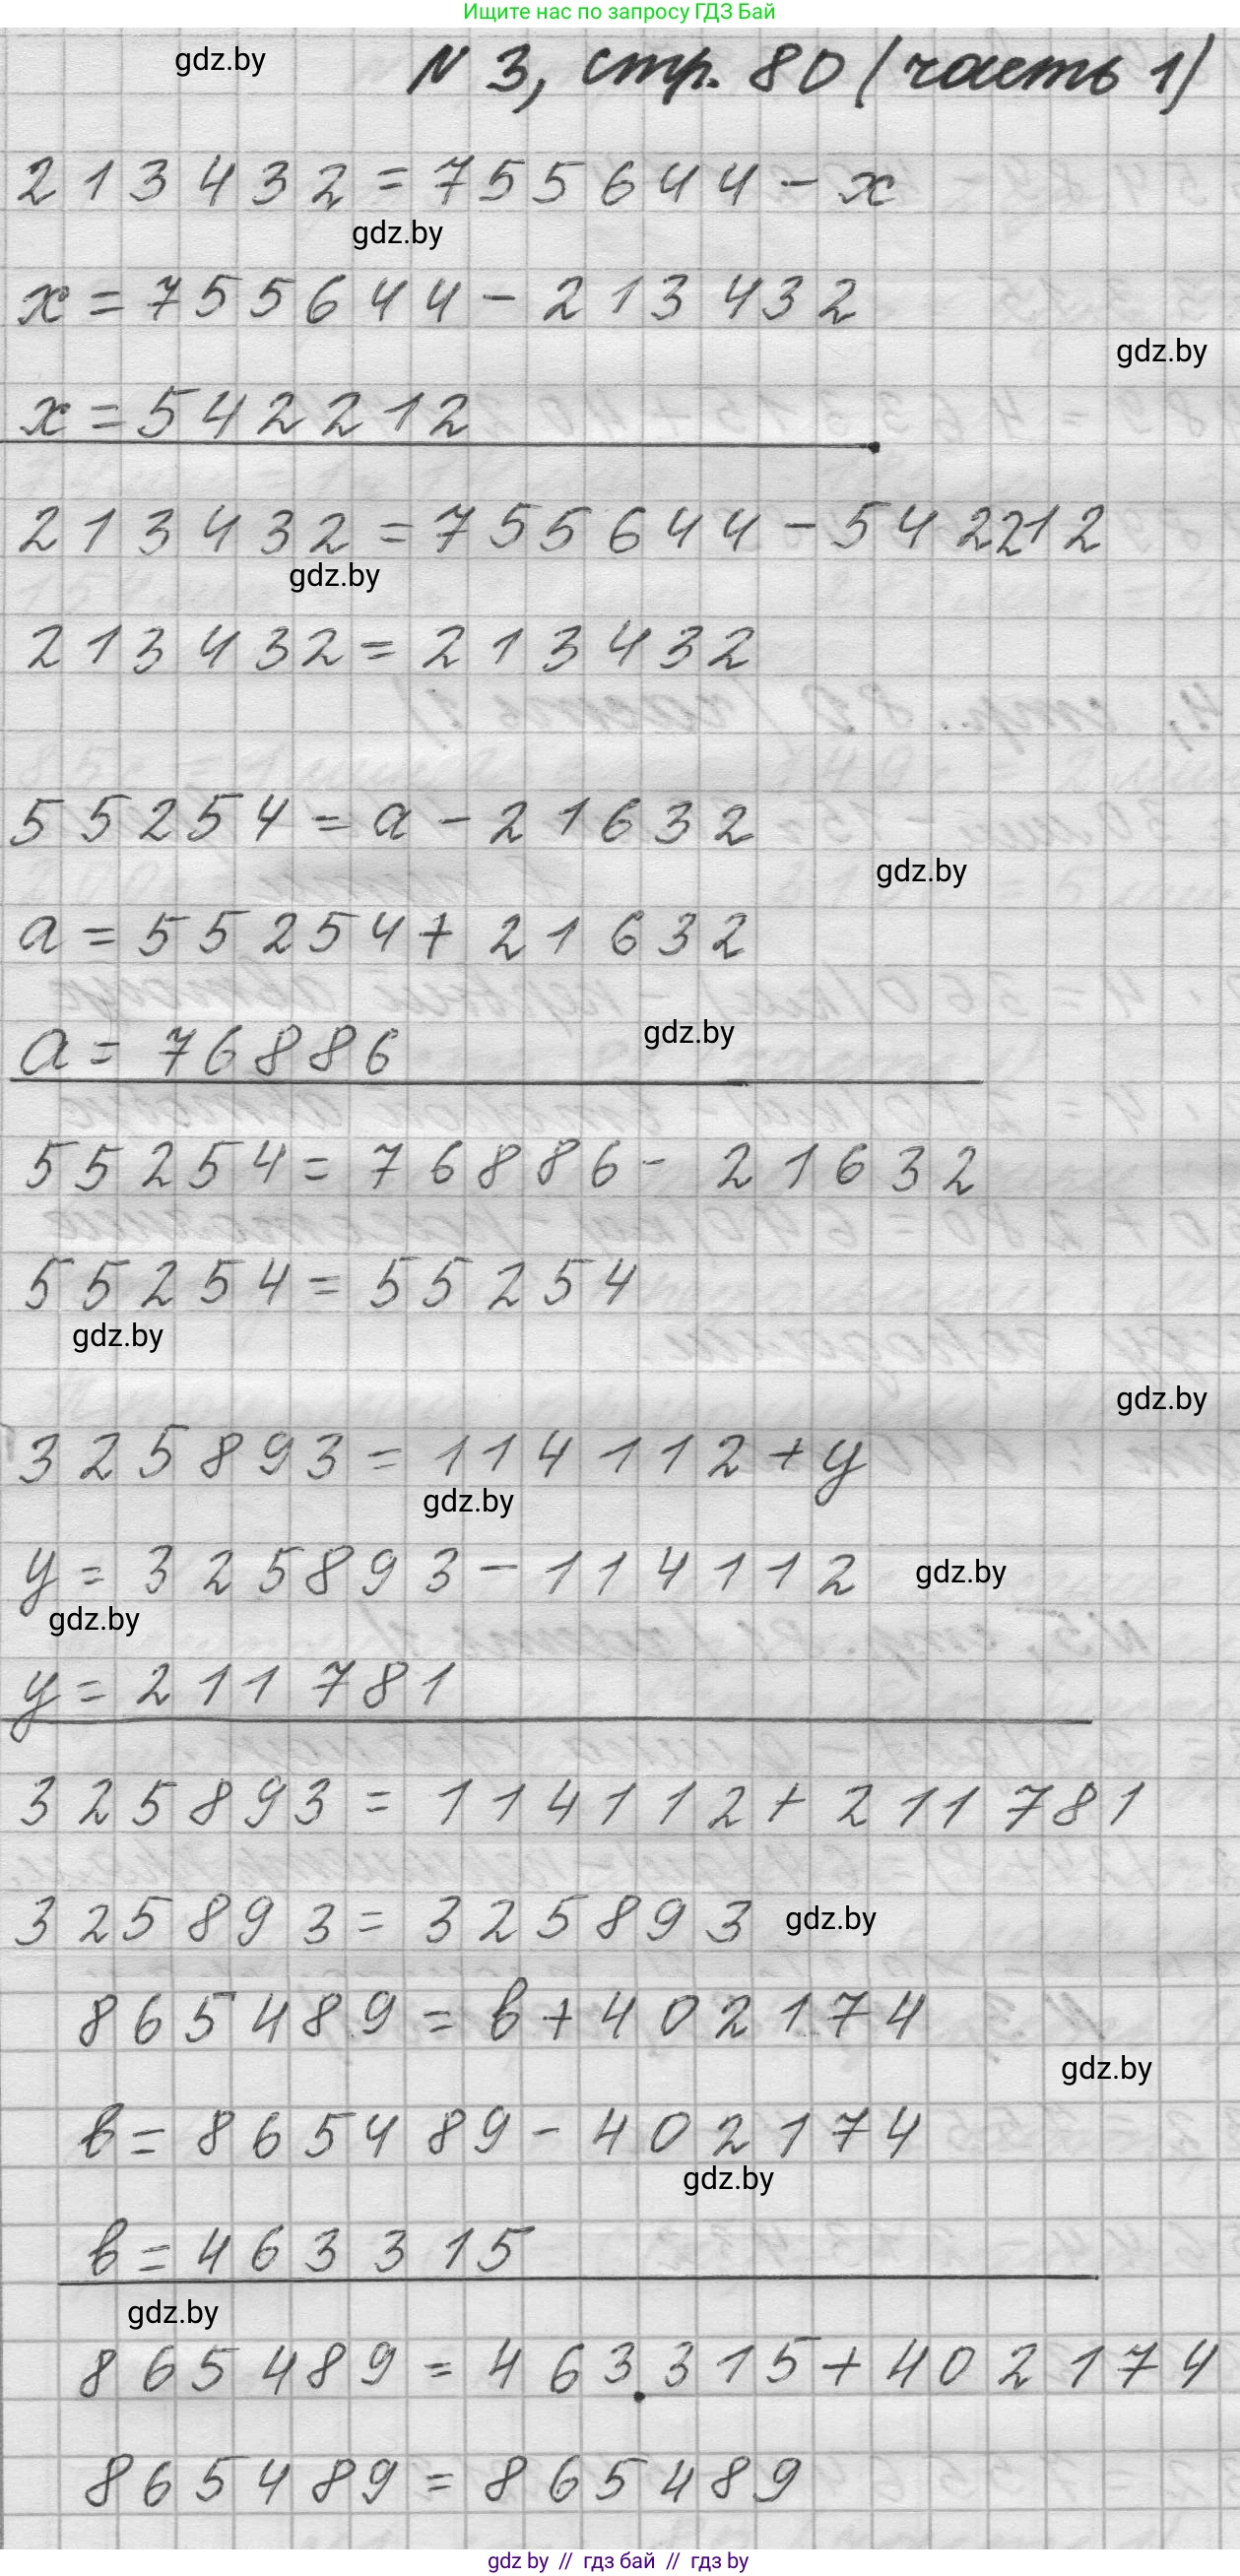 Ищите нас по запросу ГДЗ Бай
gdz.by
N 3, стр. 80 (часть 1)
213432 = 755644 - x
gdz.by
x = 755644 - 213432
gdz.by
x = 542212
213432 = 755644 - 542212
gdz.by
213432 = 213432
55254 = a - 21632
gdz.by
a = 55254 + 21632
gdz.by
a = 76886
55254 = 76886 - 21632
55254 = 55254
gdz.by
gdz.by
325893 = 114112 + y
gdz.by
y = 325893 - 114112 gdz.by
gdz.by
y = 211781
325893 = 114112 + 211781
325893 = 325893 gdz.by
865489 = b + 402174
gdz.by
b = 865489 - 402174
gdz.by
b = 463315
gdz.by
865489 = 463315 + 402174
865489 = 865489
gdz by // гдз бай // гдз by